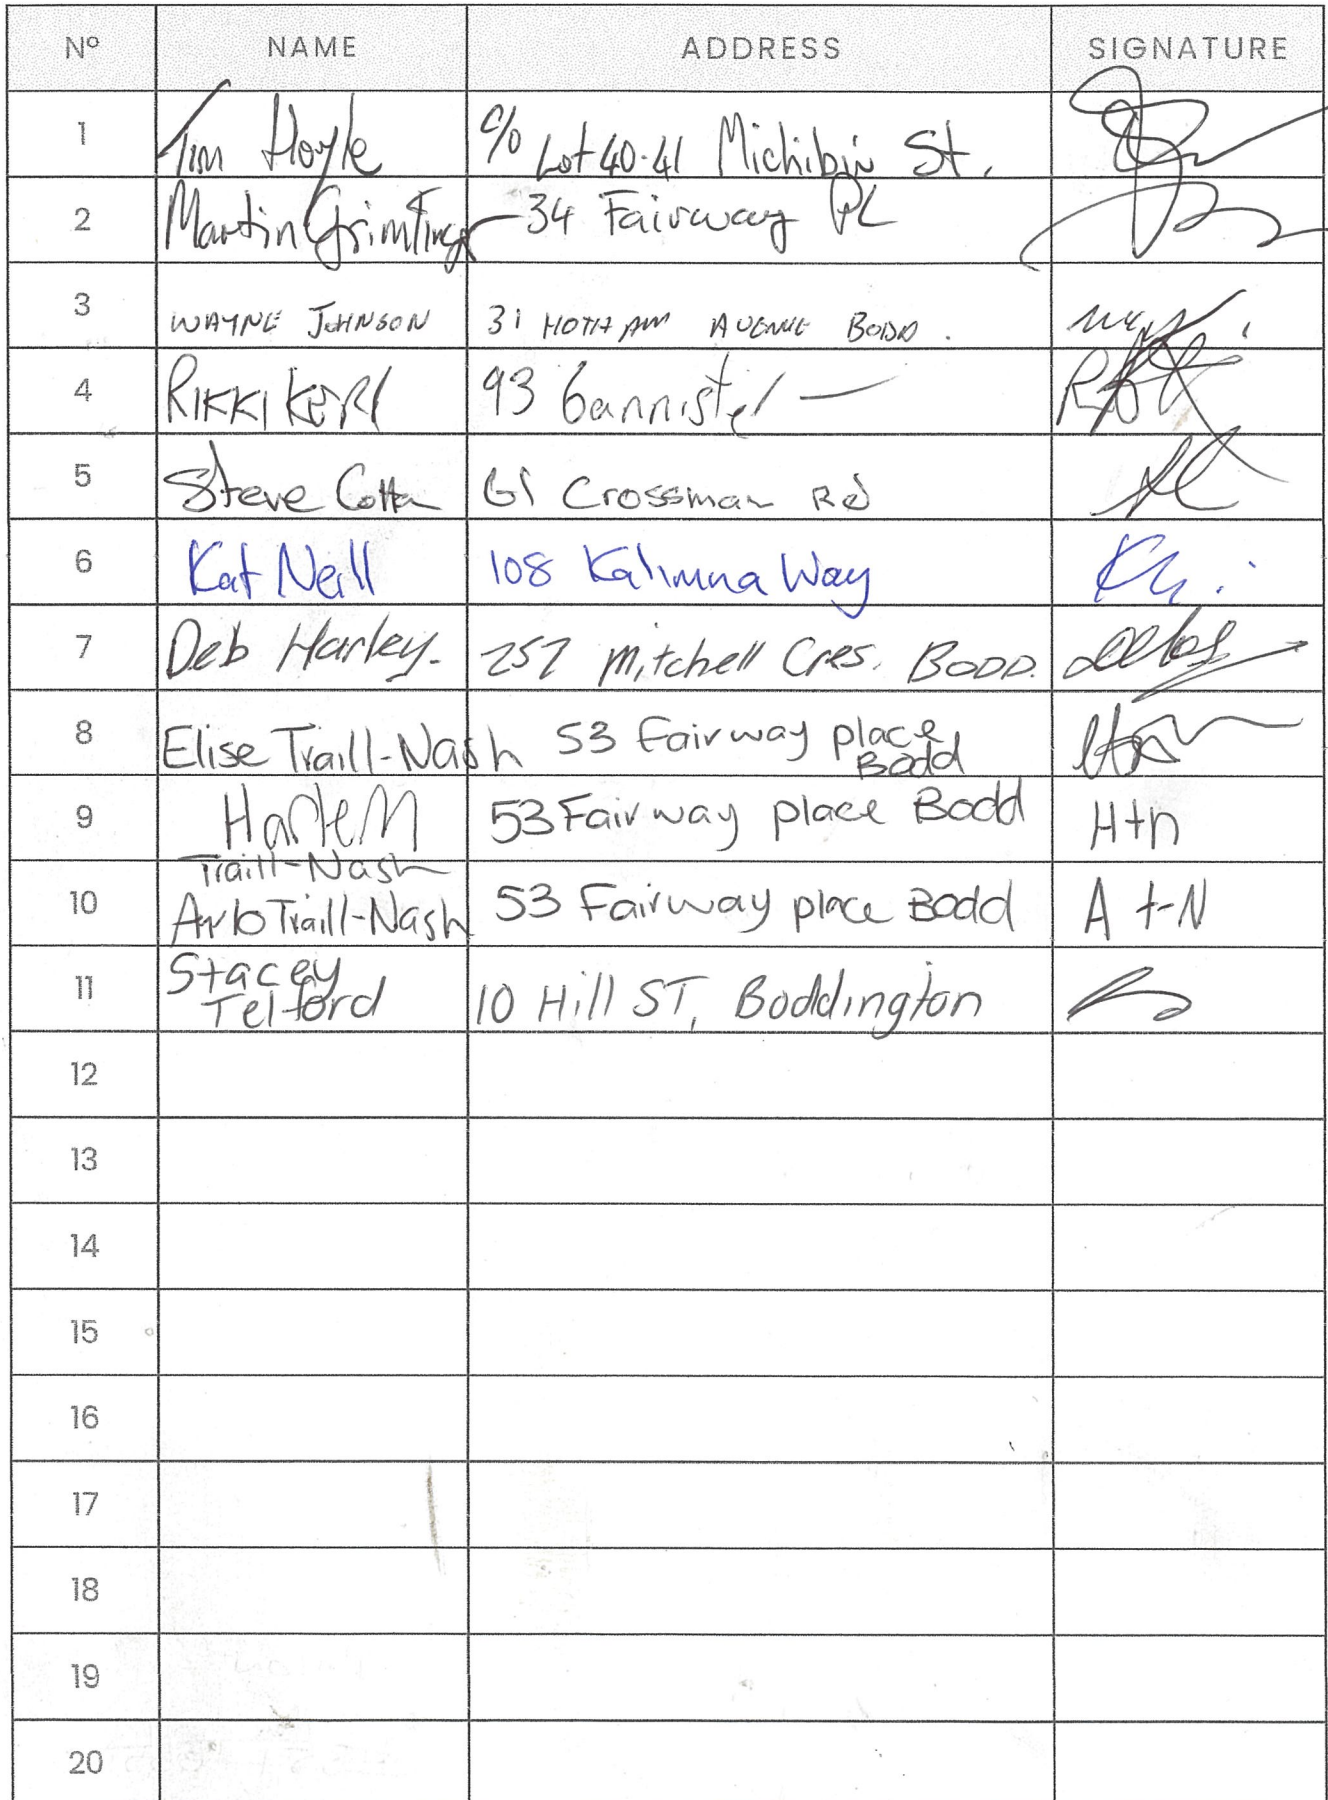 Nº NAME ADDRESS SIGNATURE
1 Tim Hoyle c/o Lot 40-41 Michibin St.
2 Martin 34 Fairway PL
3 WAYNE JOHNSON 31 HOTHAM AVENUE BODD.
4 RIKKI 93 Bannister
5 Steve Cotta 61 Crossman Rd
6 Kat Neill 108 Kalimna Way
7 Deb Harley. 257 Mitchell Cres. BODD.
8 Elise Traill-Nash 53 Fairway place
Bodd
9 Harlem 53 Fairway place Bodd H+n
Traill-Nash
10 Arlo Traill-Nash 53 Fairway place Bodd A +-N
11 Stacey
Telford 10 Hill ST, Boddington
12
13
14
15
16
17
18
19
20